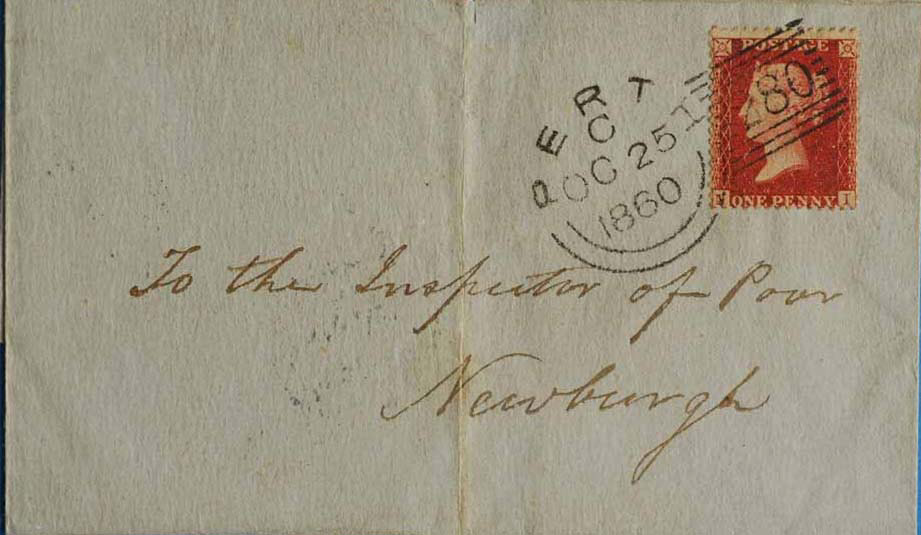 POSTAGE
ONE PENNY I
PERT
C
OC 25
1860
To the Inspector of Poor
Newburgh